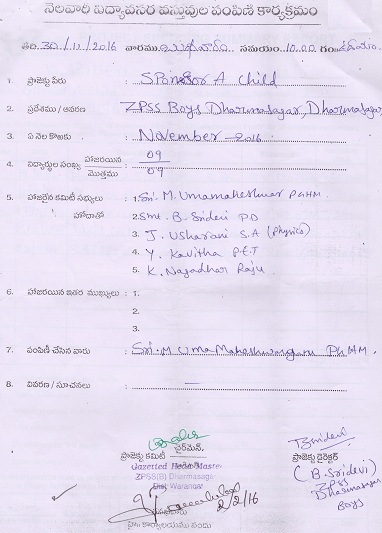 నెలవారీ విద్యావసర వస్తువుల పంపిణీ కార్యక్రమం
తేది.30/11/2016 వారము బుధవారం సమయం 10.00 గం
1. ప్రాజెక్టు పేరు : SPonsor A child
2. ప్రదేశము / ఆవరణ : ZPSS Boys Dharmasagar, Dharmasagar
3. ఏ నెల కొఱకు : November - 2016
4. విద్యార్థుల సంఖ్య హాజరయిన 09
మొత్తము 09
5. హాజరైన కమిటీ సభ్యులు : 1. Sri. M. Umamaheshwar PGHM
హోదాతో 2. Smt. B. Sridevi PD
3. J. Usharani S.A (Physics)
4. Y. Kavitha P.E.T
5. K. Nagadhar Raju
6. హాజరయిన ఇతర ముఖ్యులు : 1.
2.
3.
7. పంపిణీ చేసిన వారు : Sri. M Uma Maheshwar PGHM.
8. వివరణ / సూచనలు : —
ప్రాజెక్టు కమిటీ చైర్మెన్. ప్రాజెక్టు డైరెక్టర్
Gazetted Head Master (B. Sridevi)
ZPSS(B) Dharmasagar ZPSS
Dist Warangal Dharmasagar
2/2/16 Boys